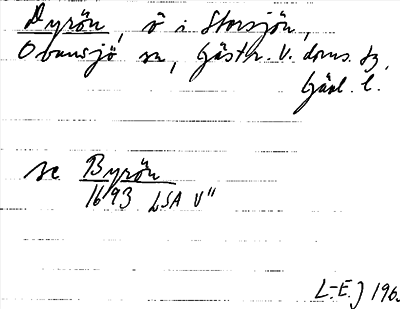 Dyrön, ö i Storsjön,
Ovansjö sn, Gästr. V. doms. tg,
Gävl. l.
se Byrön
1693 LSA V11
L-E.J 196